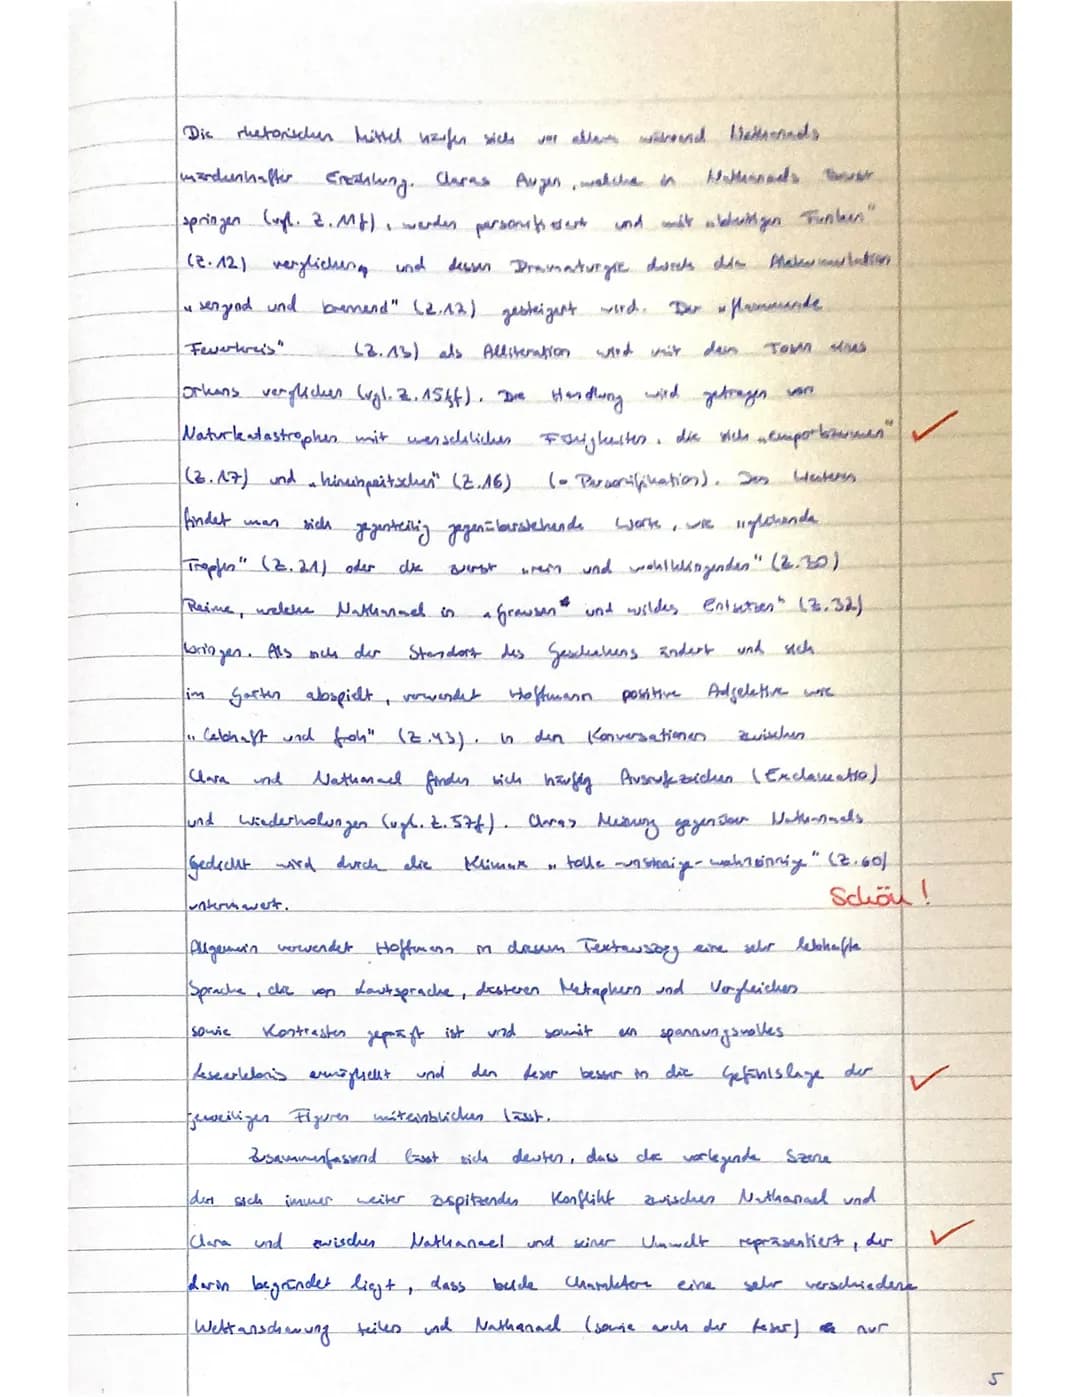 Die rhetorischen Mittel häufen sich vor allem während Nathanaels
märchenhafter Erzählung. Claras Augen, welche in Nathanaels Brust
springen (vgl. Z. 11f), werden personifiziert und mit „blutigen Funken"
(Z. 12) verglichen, und dessen Dramaturgie durch die Akkumulation
„sengend und brennend" (Z. 12) gesteigert wird. Der „flammende
Feuerkreis" (Z. 13) als Alliteration wird mit dem Toben eines
Orkans verglichen (vgl. Z. 15ff). Die Handlung wird getragen von
Naturkatastrophen mit menschlichen Fähigkeiten, die sich „emporbäumen"
(Z. 17) und „hineinpeitschen" (Z. 16) (= Personifikation). Des Weiteren
findet man sich gegenteilig gegenüberstehende Worte, wie „glühende
Tropfen" (Z. 21) oder die zuerst „rein und wohlklingenden" (Z. 30)
Reime, welche Nathanael in „Grausen" und wildes Entsetzen" (Z. 32)
bringen. Als sich der Standort des Geschehens ändert und sich
im Garten abspielt, verwendet Hoffmann positive Adjektive wie
„lebhaft und froh" (Z. 43). In den Konversationen zwischen
Clara und Nathanael finden sich häufig Ausrufezeichen (Exclamatio)
und Wiederholungen (vgl. Z. 57f). Claras Meinung gegenüber Nathanaels
Gedicht wird durch die Klimax „tolle - unsinnige - wahnsinnige" (Z. 60)
untermauert.
Schön!
Allgemein verwendet Hoffmann in diesem Textauszug eine sehr lebhafte
Sprache, die von Lautsprache, düsteren Metaphern und Vergleichen
sowie Kontrasten geprägt ist und somit ein spannungsvolles
Leseerlebnis ermöglicht und den Leser besser in die Gefühlslage der
jeweiligen Figuren miteinblicken lässt.
Zusammenfassend lässt sich deuten, dass die vorliegende Szene
den sich immer weiter zuspitzenden Konflikt zwischen Nathanael und
Clara und zwischen Nathanael und seiner Umwelt repräsentiert, der
darin begründet liegt, dass beide Charaktere eine sehr verschiedene
Weltanschauung teilen und Nathanael (sowie auch der Leser) nur
5